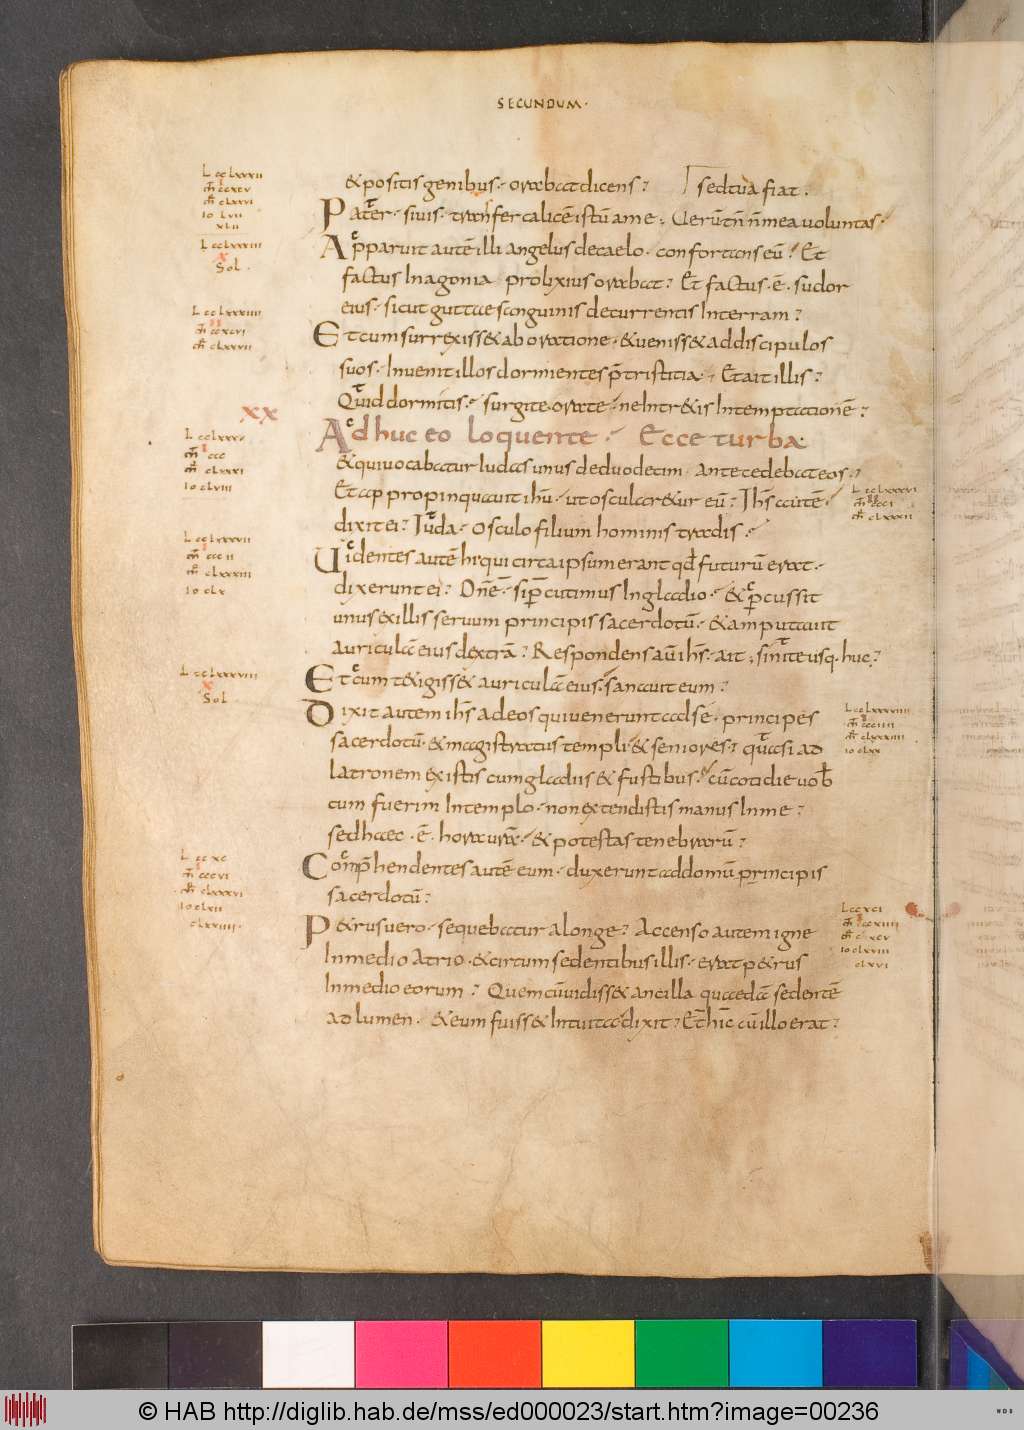 SECUNDUM·
& positis genibus· orabat dicens? sed tua fiat.
Pater· si vis· transfer calicē istū a me· Uerūtn̄ n̄ mea voluntas·
Apparuit autē illi angelus de caelo· confortans eū? Et
factus In agonia prolixius orabat? Et factus· ē· sudor
eius· sicut guttae sanguinis decurrentis In terram?
Et cum surrexiss& ab oratione· & veniss& ad discipulos
suos· Invenit illos dormientes p̄ tristitia· Et ait illis?
Quid dormitis· surgite orate· ne Intr&is In temptationē?
XX
Adhuc eo loquente· Ecce turba
& qui vocabatur Iudas unus de duodecim· antecedebat eos·
Et appropinquavit ih̄u· ut oscular&ur eū? Ih̄s autē·
dixit ei? Iuda· osculo filium hominis tradis·
Uidentes autē hi qui circa ipsum erant qd̄ futurū erat·
dixerunt ei? Dn̄e· si p̄cutimus In gladio· & p̄cussit
unus ex illis servum principis sacerdotū· & amputavit
auriculā eius dextrā? Respondens aū ih̄s· ait· sinite usq· huc?
Et cum t&igiss& auriculā eius· sanavit eum?
Dixit autem ih̄s ad eos qui venerunt ad se· principes
sacerdotū· & magistratus templi & seniores? quasi ad
latronem existis cum gladiis & fustibus· cū cotidie vob
cum fuerim In templo· non extendistis manus In me?
sed haec· ē· hora vrā· & potestas tenebrarū?
Comp̄hendentes autē eum· duxerunt ad domū principis
sacerdotū?
P&rus vero· sequebatur a longe? Accenso autem igne
In medio atrio· & circum sedentibus illis· erat p&rus
In medio eorum? Quem cū vidiss& ancilla quaedā sedentē
ad lumen· & eum fuiss& Intuita dixit? Et hic cū illo erat?
© HAB http://diglib.hab.de/mss/ed000023/start.htm?image=00236